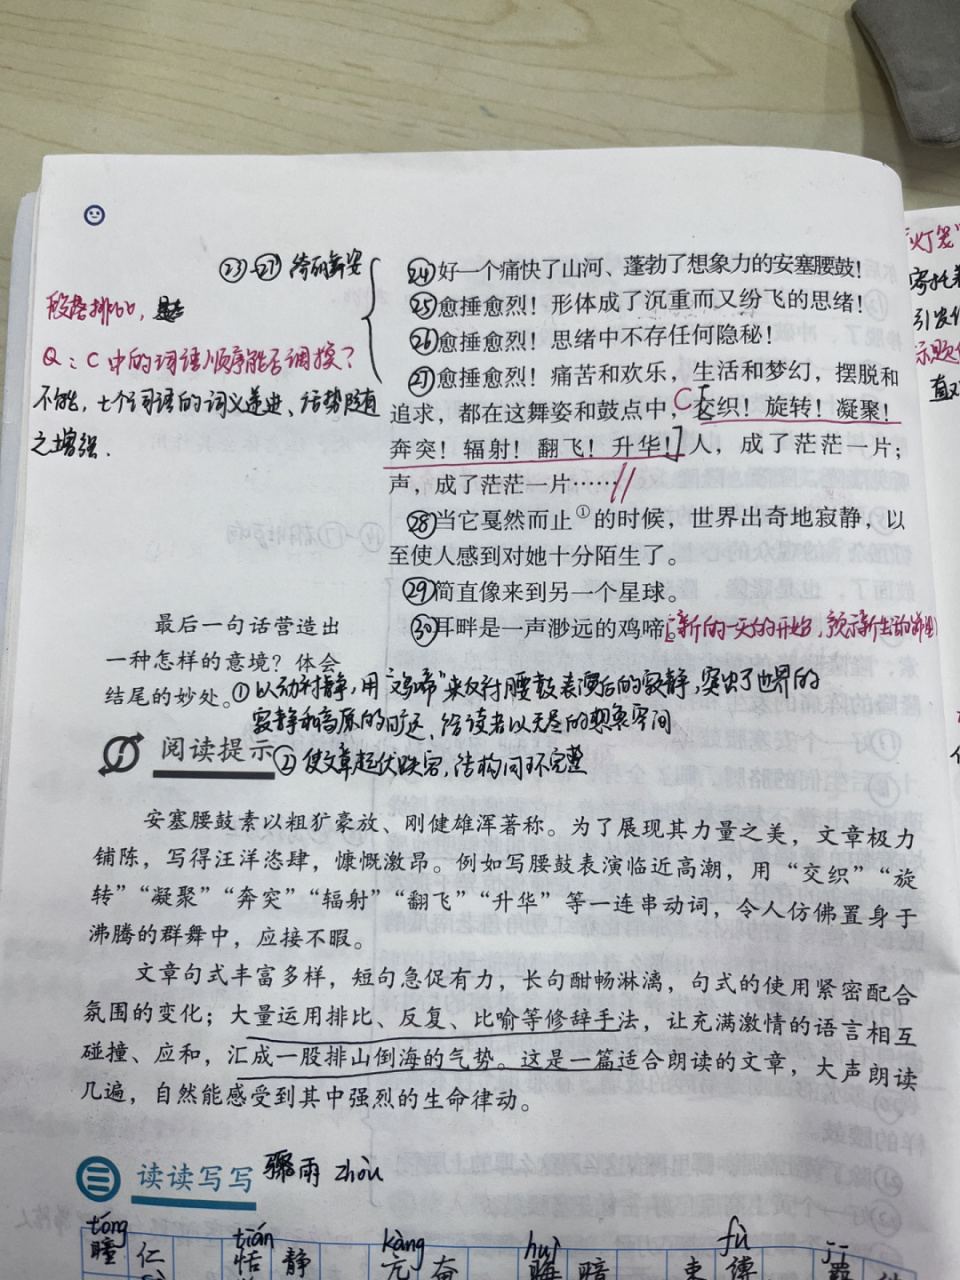 ㉓-㉗ 绮丽舞姿
段落排比，
Q：C中的词语顺序能否调换？
不能，七个词语的词义递进、语势随
之增强.
㉔好一个痛快了山河、蓬勃了想象力的安塞腰鼓！
㉕愈捶愈烈！形体成了沉重而又纷飞的思绪！
㉖愈捶愈烈！思绪中不存任何隐秘！
㉗愈捶愈烈！痛苦和欢乐，生活和梦幻，摆脱和
追求，都在这舞姿和鼓点中，C[交织！旋转！凝聚！
奔突！辐射！翻飞！升华！]人，成了茫茫一片；
声，成了茫茫一片……
㉘当它戛然而止①的时候，世界出奇地寂静，以
至使人感到对她十分陌生了。
㉙简直像来到另一个星球。
㉚耳畔是一声渺远的鸡啼。新的一天的开始，预示新生活的
最后一句话营造出
一种怎样的意境？体会
结尾的妙处。
①以动衬静，用“鸡啼”来反衬腰鼓表演后的寂静，突出了世界的
寂静和高原的，给读者以无尽的想象空间
阅读提示
②使文章起伏跌宕，结构回环完整
安塞腰鼓素以粗犷豪放、刚健雄浑著称。为了展现其力量之美，文章极力
铺陈，写得汪洋恣肆，慷慨激昂。例如写腰鼓表演临近高潮，用“交织”“旋
转”“凝聚”“奔突”“辐射”“翻飞”“升华”等一连串动词，令人仿佛置身于
沸腾的群舞中，应接不暇。
文章句式丰富多样，短句急促有力，长句酣畅淋漓，句式的使用紧密配合
氛围的变化；大量运用排比、反复、比喻等修辞手法，让充满激情的语言相互
碰撞、应和，汇成一股排山倒海的气势。这是一篇适合朗读的文章，大声朗读
几遍，自然能感受到其中强烈的生命律动。
三 读读写写 骤雨 zhòu
tóng tián kàng huì fù
瞳 仁 恬 静 亢 奋 晦 暗 束 缚
“灯笼”
寄托
引发
示题
直